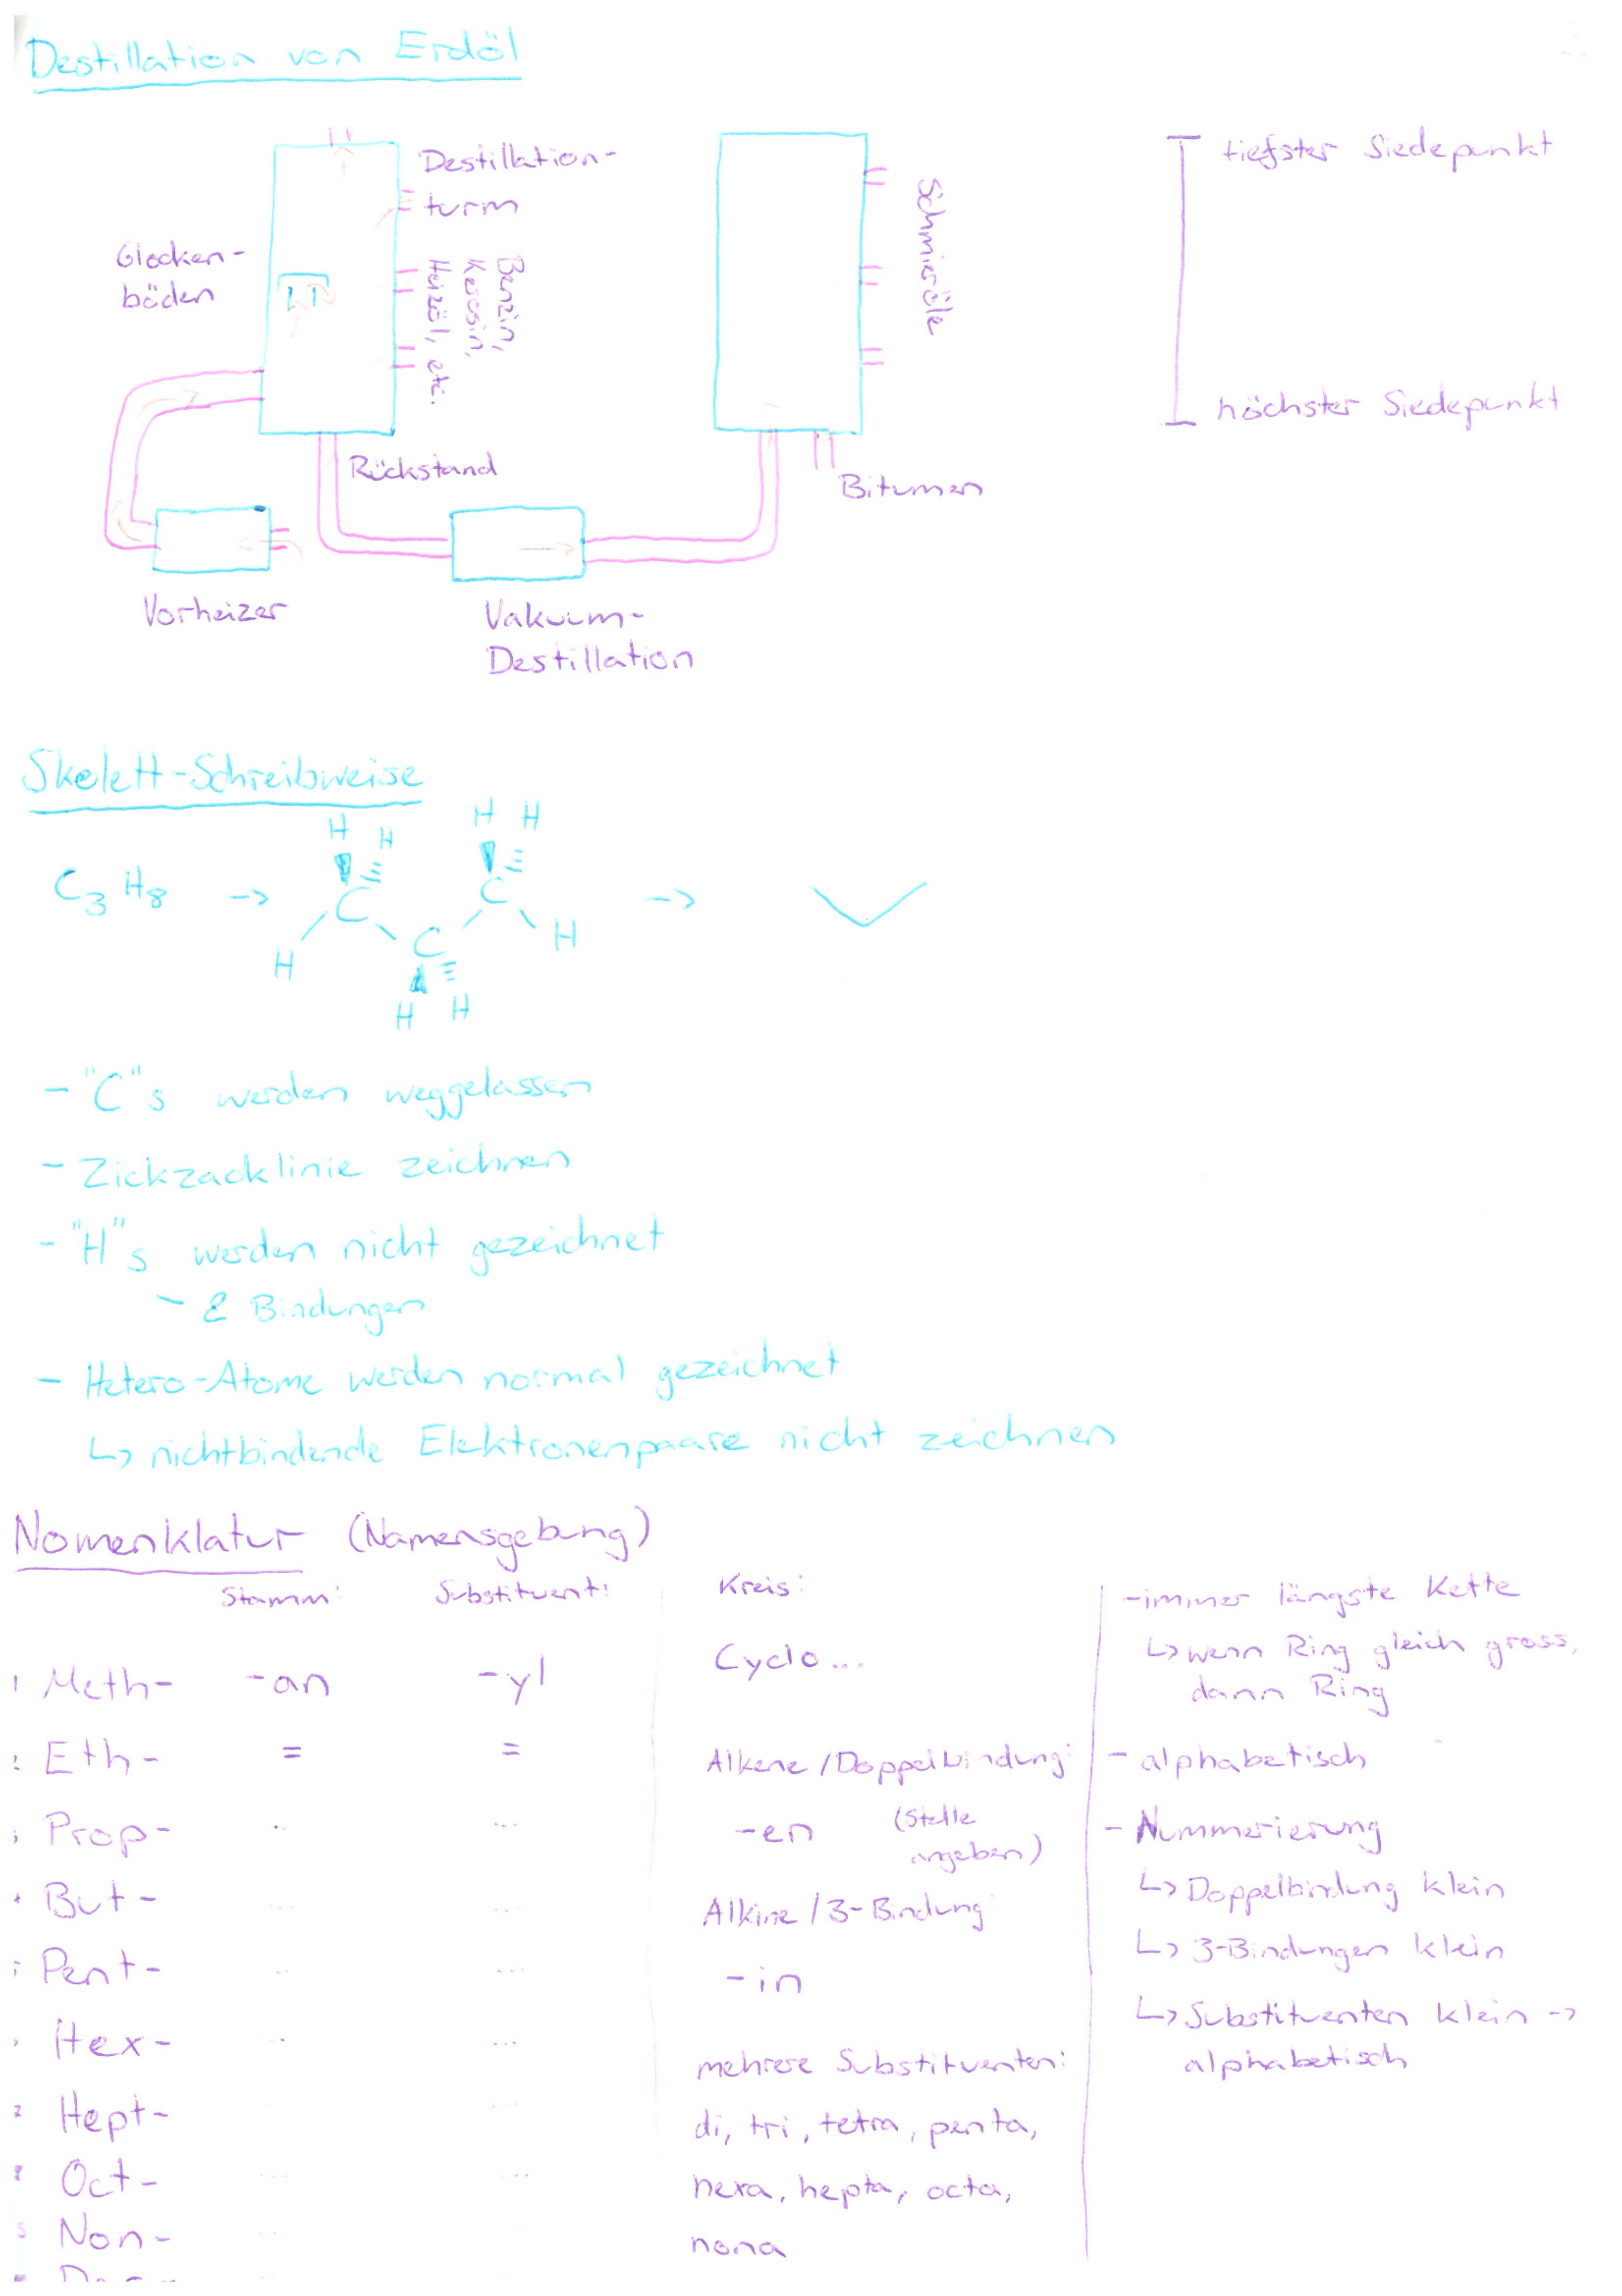 Destillation von Erdöl
Destillation-
turm
Glocken-
böden
Benzin,
Kerosin,
Heizöl, etc.
Schmieröle
tiefster Siedepunkt
höchster Siedepunkt
Rückstand
Bitumen
Vorheizer
Vakuum-
Destillation
Skelett-Schreibweise
C3H8 ->
H H H H
C C
H C H
H H
->
- "C"s werden weggelassen
- Zickzacklinie zeichnen
- "H"s werden nicht gezeichnet
- & Bindungen
- Hetero-Atome werden normal gezeichnet
↳ nichtbindende Elektronenpaare nicht zeichnen
Nomenklatur (Namensgebung)
Stamm: Substituent:
1 Meth- -an -yl
Eth- = =
Prop- .. ...
But- ... ...
Pent- ... ...
Hex- ... ...
Hept- ...
8 Oct- ... ...
Non- ...
Kreis:
Cyclo...
Alkene/Doppelbindung:
-en (Stelle
angeben)
Alkine/3-Bindung
-in
mehrere Substituenten:
di, tri, tetra, penta,
hexa, hepta, octa,
nona
- immer längste Kette
↳ wenn Ring gleich gross,
dann Ring
- alphabetisch
- Nummerierung
↳ Doppelbindung klein
↳ 3-Bindungen klein
↳ Substituenten klein ->
alphabetisch